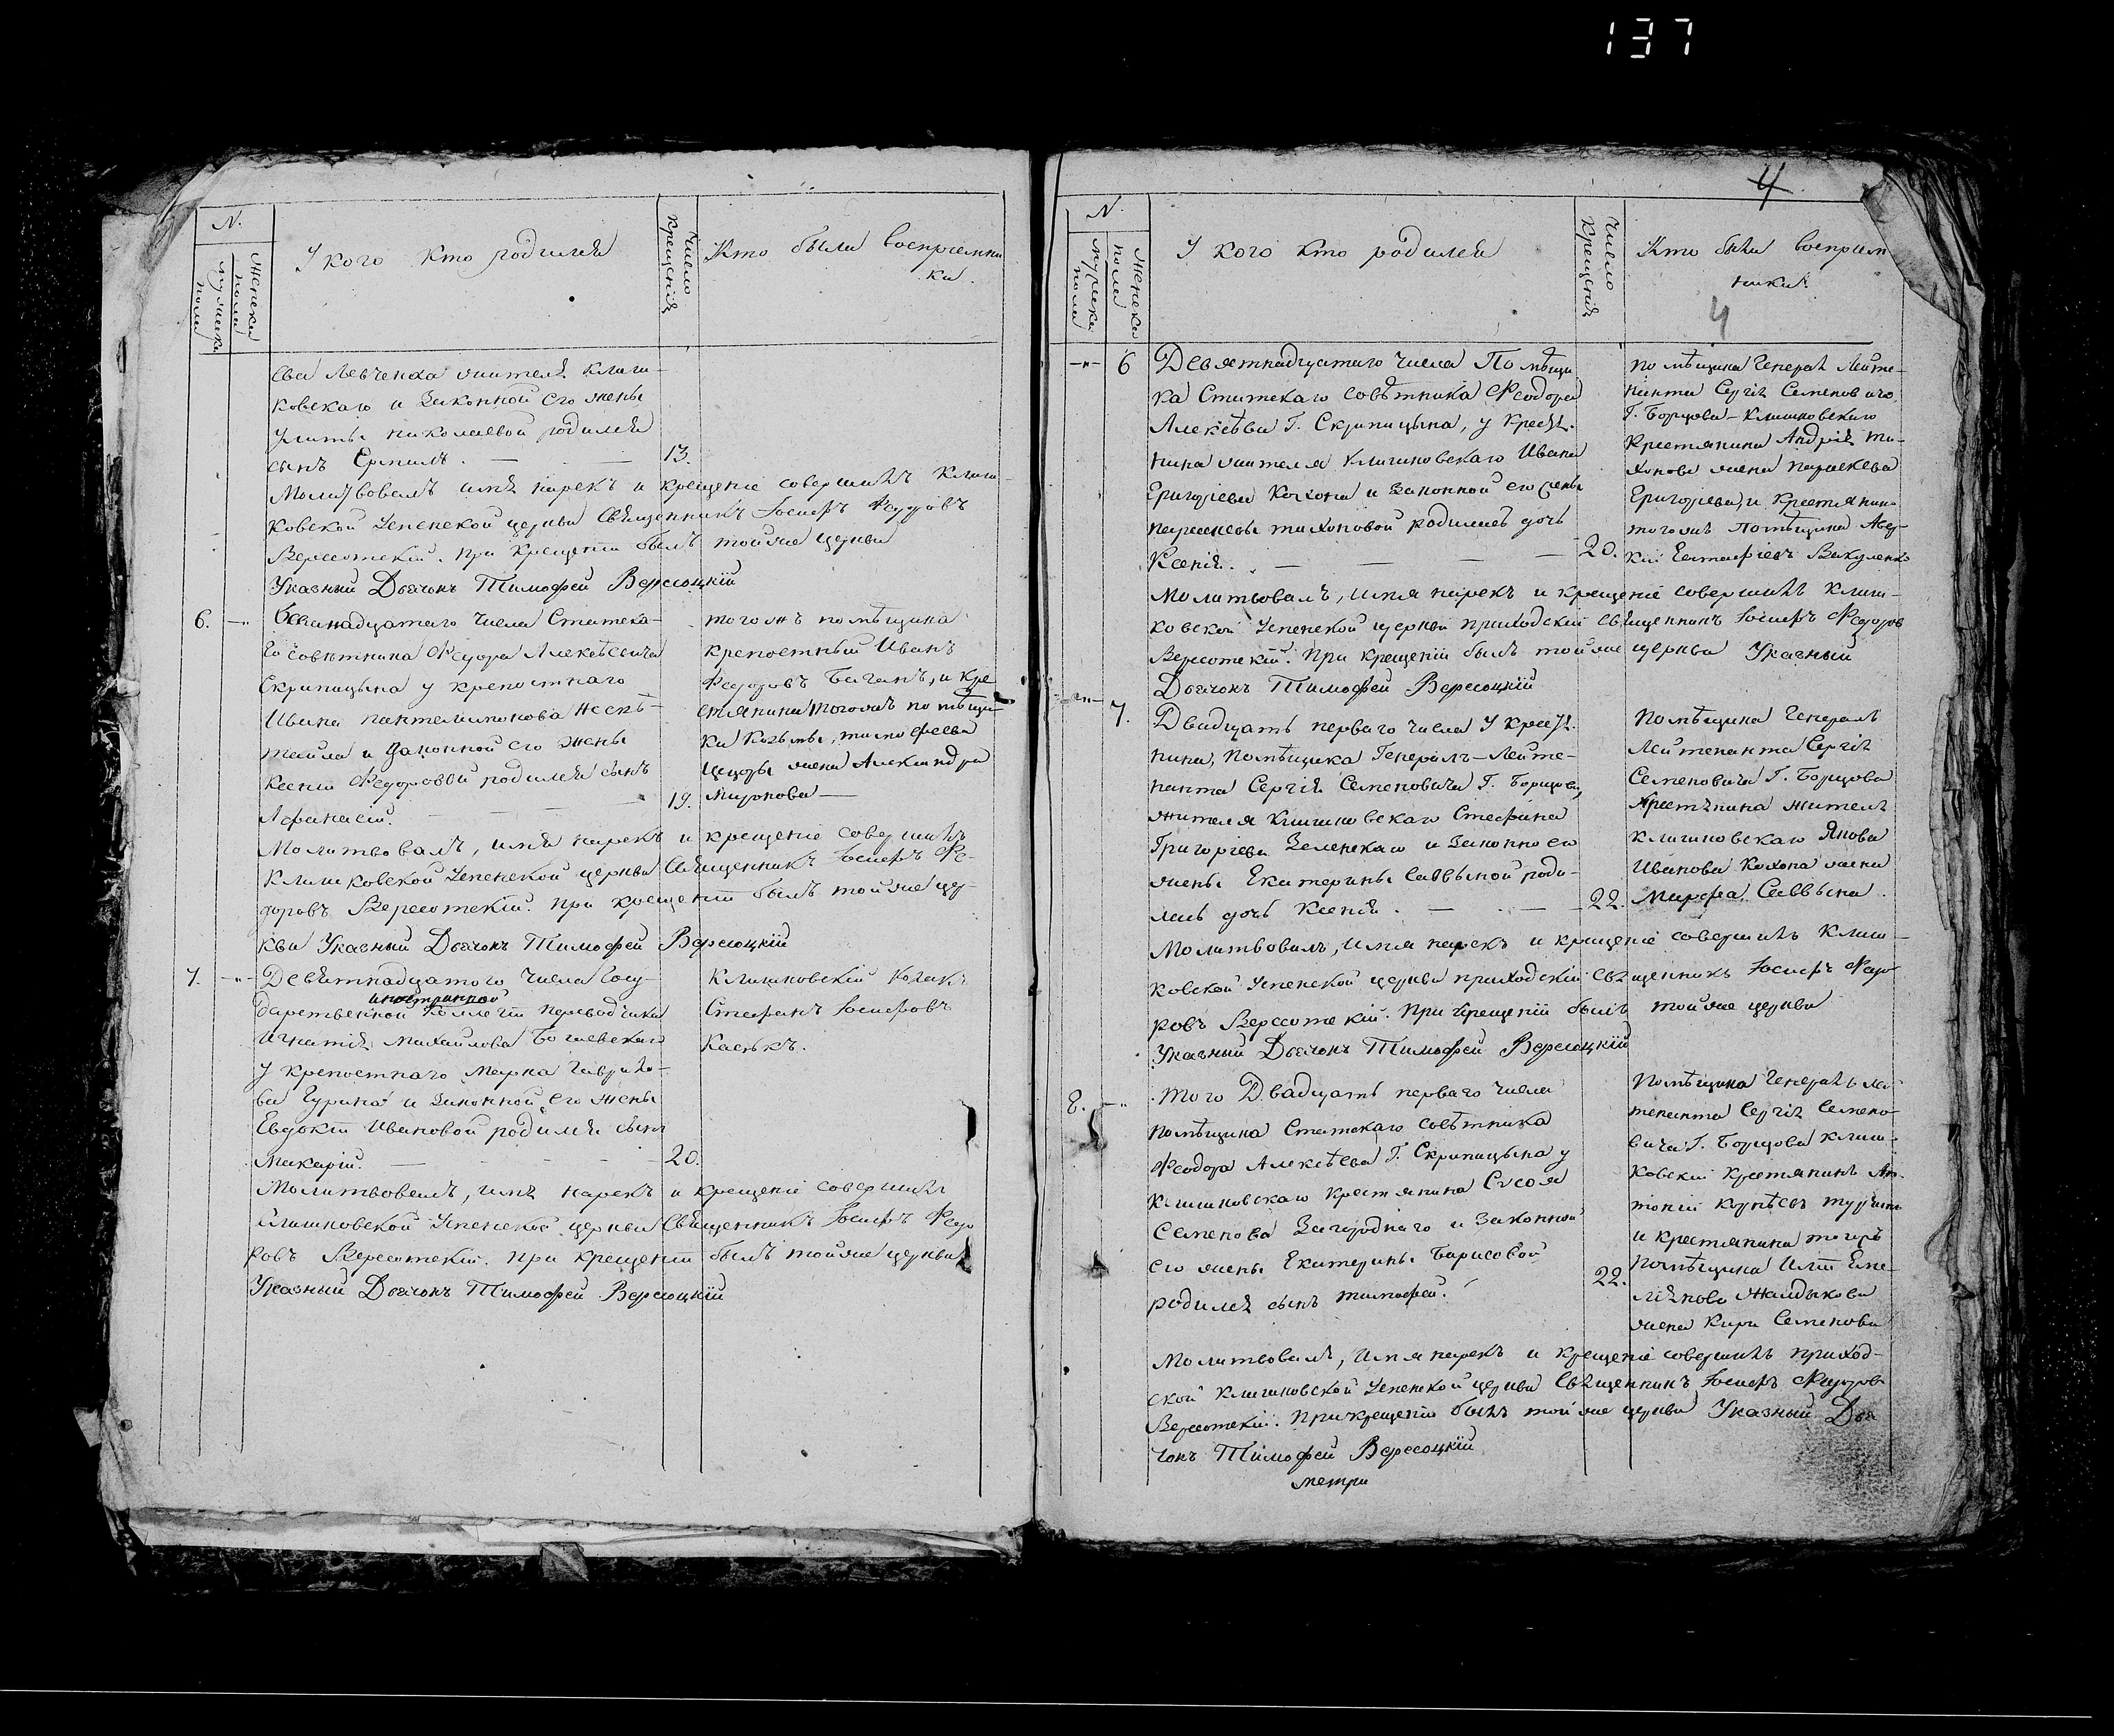 137
N.
мужеска пола
женска пола
У кого кто родился
число крещенія
Кто были воспріемни
ки.
ева Левченка жителя клиш-
ковскаго и законной его жены
Улиты николаевой родился
сынъ Ермилъ. — — — 13.
Молитвовалъ имя нарекъ и крещеніе совершилъ Клиш-
ковской Успенской церкви Священникъ Іосифъ Федоровъ
Вересотскій. при крещеніи былъ тойже церкви
Указный Дьячокъ Тимофей Вересоцкій
6. -"-
надцатаго числа Статска-
го совѣтника Федора Алексѣевича
Скрипицына у крепостнаго
Ивана пантелимонова
и законной его жены
Ксеніи Федоровой родился сынъ
Афанасій. — — — 19.
тогожъ помѣщика
крепостный Иванъ
Федоровъ и кре
стянина тогожъ помѣщи-
ка Козьмы тимофеева
жена Александра
Миронова —
Молитвовалъ, имя нарекъ и крещеніе совершилъ
Клишковской Успенской церкви Священникъ Іосифъ Фе-
доровъ Вересотскій. при крещеніи былъ тойже цер-
кви Указный Дьячокъ Тимофей Вересоцкій
7. -"-
Девятнадцатого числа Госу-
иностранной
дарственной Коллегіи переводчика
Игнатія Михайлова
у крепостнаго Марка Гаврило-
ва Гурина и законной его жены
Евдокіи Ивановой родился сынъ
Макарій. — — — 20.
Клишковскій Козакъ
Стефанъ Іосифовъ
Касьянъ.
Молитвовалъ, имя нарекъ и крещеніе совершилъ
Клишковской Успенской церкви Священникъ Іосифъ Федо
ровъ Вересотскій. при крещеніи былъ тойже церкви
Указный Дьячокъ Тимофей Вересоцкій
4
N.
мужеска пола
женска пола
У кого кто родился
Число Крещенія
Кто были воспріем
ники
4
-"- 6
Девятнадцатаго числа Помѣщи
ка Статскаго совѣтника Феодора
Алексѣева Г. Скрипицына, у Крестя-
нина жителя Клишковскаго Ивана
Григоріева Кохона и законной его жены
параскевы тихоновой родилась дочь
Ксенія. — — — 20.
помѣщика Генералъ Лейте-
нанта Сергія Семеновича
Г. Борщова Клишковскаго
Крестянина Андрея ти-
хонова жена параскева
Григоріева, и Крестянинъ
тогожъ помѣщика
Евстафіевъ Вакуленко
Молитвовалъ, имя нарекъ и крещеніе совершилъ Клиш-
ковской Успенской церкви приходскій священникъ Іосифъ Федоров
Вересотскій. При крещеніи былъ тойже церкви Указный
Дьячокъ Тимофей Вересоцкій
-"- 7.
Двадцать перваго числа У крестя-
нина, помѣщика Генералъ-Лейте-
нанта Сергія Семеновича Г. Борщова,
жителя Клишковскаго Стефана
Григоріева Зеленскаго и законной его
жены Екатерины Саввиной роди-
лась дочь Ксенія. — — — 22.
Помѣщика Генералъ
Лейтенанта Сергія
Семеновича Г. Борщова
Крестянина жителя
клишковскаго Якова
Иванова Кохона жена
Марфа Саввина.
Молитвовалъ, имя нарекъ и крещеніе совершилъ Клиш-
ковской Успенской церкви приходскій священникъ Іосифъ Федо
ровъ Вересотскій. При крещеніи былъ тойже церкви
Указный Дьячокъ Тимофей Вересоцкій
8. -"-
Того Двадцать перваго числа
помѣщика Статскаго совѣтника
Феодора Алексѣева Г. Скрипицына у
Клишковскаго крестянина Сысоя
Семенова Загороднаго и законной
его жены Екатерины Борисовой
родился сынъ тимофей. 22.
Помѣщика Генералъ лей-
тенанта Сергія Семено-
вича Г. Борщова клиш-
ковскій крестянинъ Ан-
тоній Корнѣевъ
и крестянина тогожъ
помѣщика Еме-
ліянова
жена Кира Семенова
Молитвовалъ, имя нарекъ и крещеніе совершилъ приход-
ской Клишковской Успенской церкви Священникъ Іосифъ Федоров
Вересотскій. При крещеніи былъ тойже церкви Указный Дья
чокъ Тимофей Вересоцкій
метри